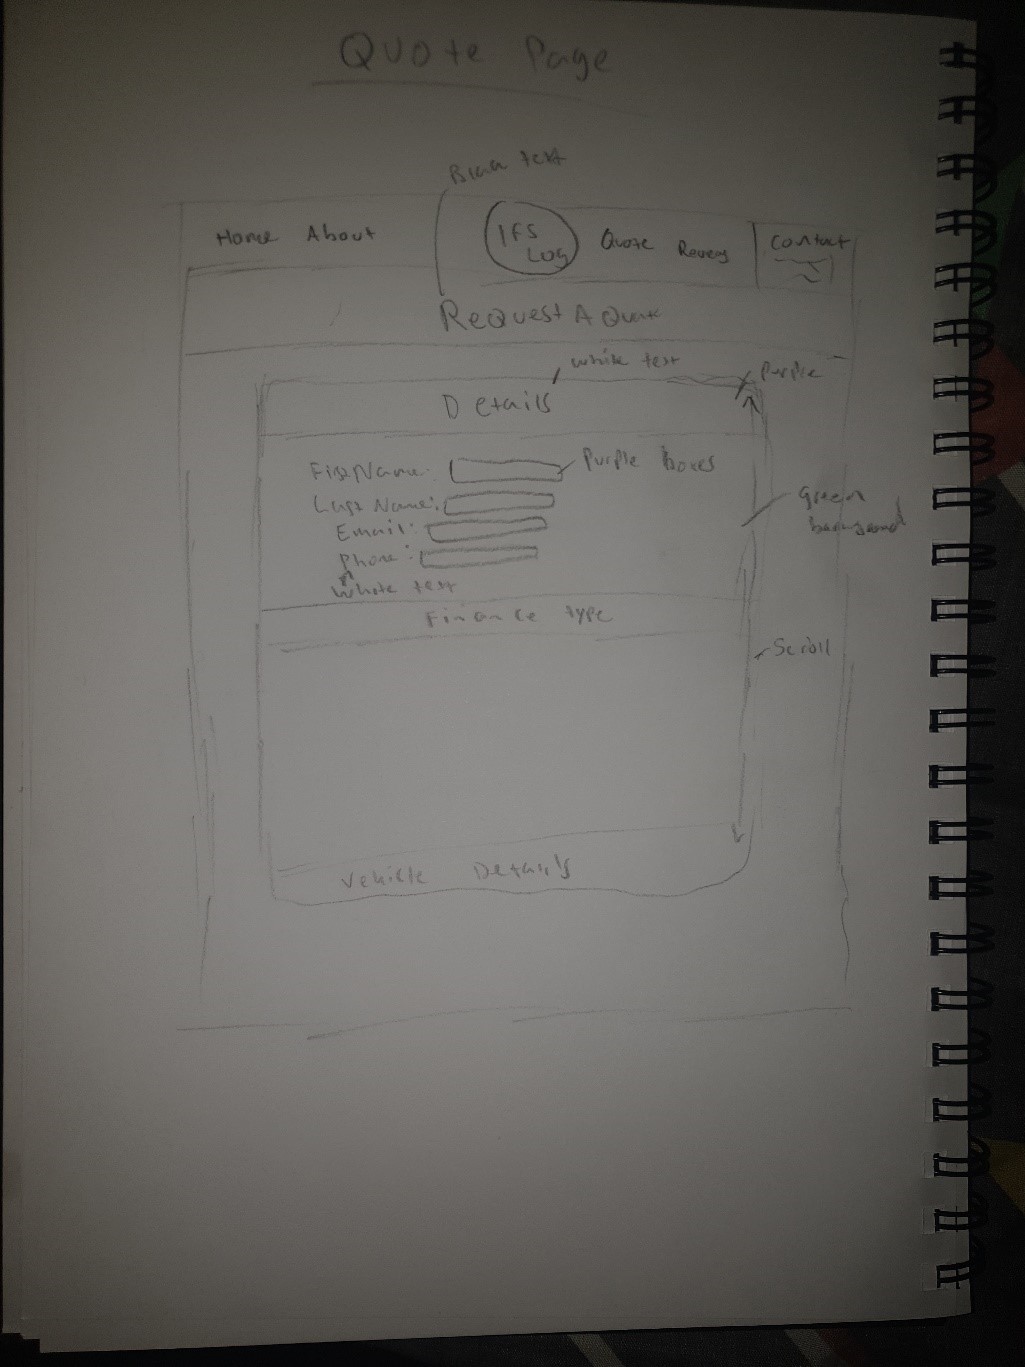 Quote Page
Home About
IFS
Log
Quote
Contact
Request A Quote
white text
Purple
Details
First Name:
Purple boxes
Last Name:
Green
Email:
Phone:
White text
Finance type
Scroll
Vehicle Details